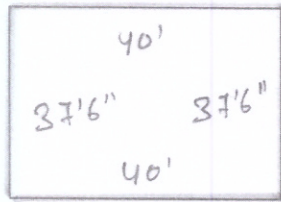 40'
37'6" 37'6"
40'